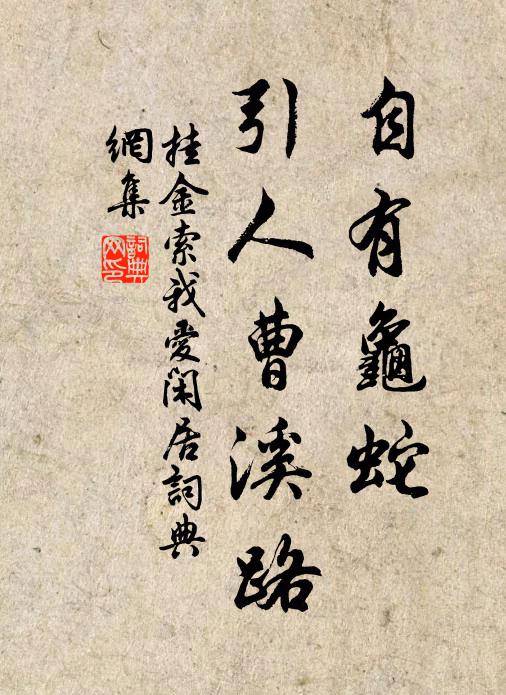 自有龜蛇
引人曹溪路
挂金索我愛閑居詞典
網集
詞典
网印